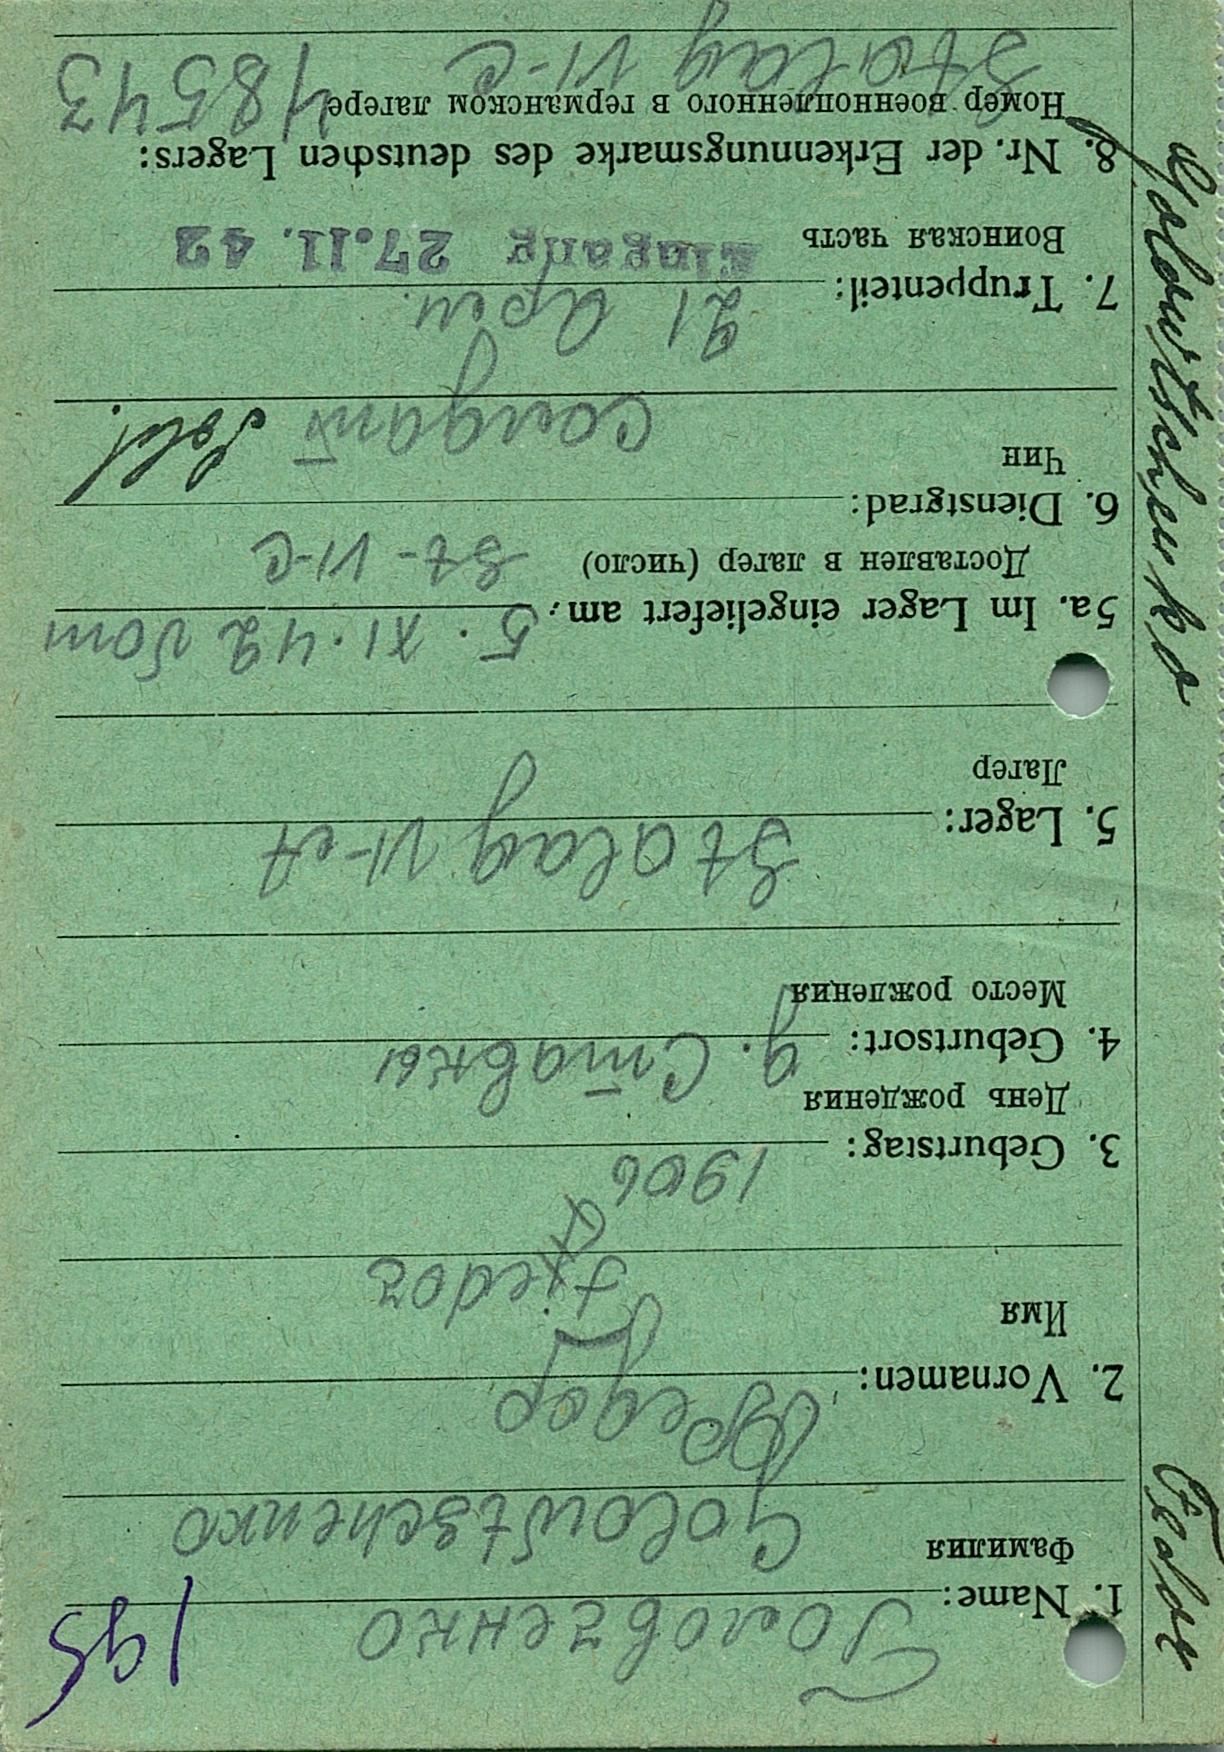 195
Головченко
1. Name:
Фамилия
Golowtschenko
Федор
2. Vornamen:
Имя
Fjedor
1906
3. Geburtstag:
День рождения
д. Ставки
4. Geburtsort:
Место рождения
Stalag VI-A
5. Lager:
Лагер
5. XI. 42 vom
5a. Im Lager eingeliefert am:
Доставлен в лагер (число)
St-VI-C
6. Dienstgrad:
Чин
солдат Sold.
21 арм.
7. Truppenteil:
Воинская часть
Eingang 27.11.42
8. Nr. der Erkennungsmarke des deutschen Lagers:
Номер военнопленного в германском лагере
48543
Stalag VI-C
Golowtschenko